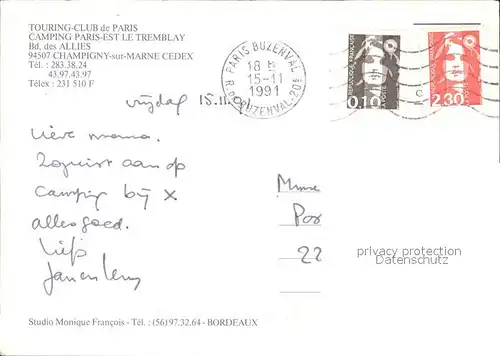 TOURING-CLUB de PARIS
CAMPING PARIS-EST LE TREMBLAY
Bd. des ALLIES
94507 CHAMPIGNY-sur-MARNE CEDEX
Tél. : 283.38.24
43.97.43.97
Télex : 231 510 F
PARIS BUZENVAL
18 H
15-11
1991
R. DE BUZENVAL - 20E
REPUBLIQUE FRANÇAISE
0,10
REPUBLIQUE FRANÇAISE
2,30
vrijdag 15.11.91
Lieve mama.
aan op
Camping bij X
alles goed.
Liefs
Jan en
Mme
22
privacy protection
Datenschutz
Studio Monique François - Tél. : (56) 97.32.64 - BORDEAUX